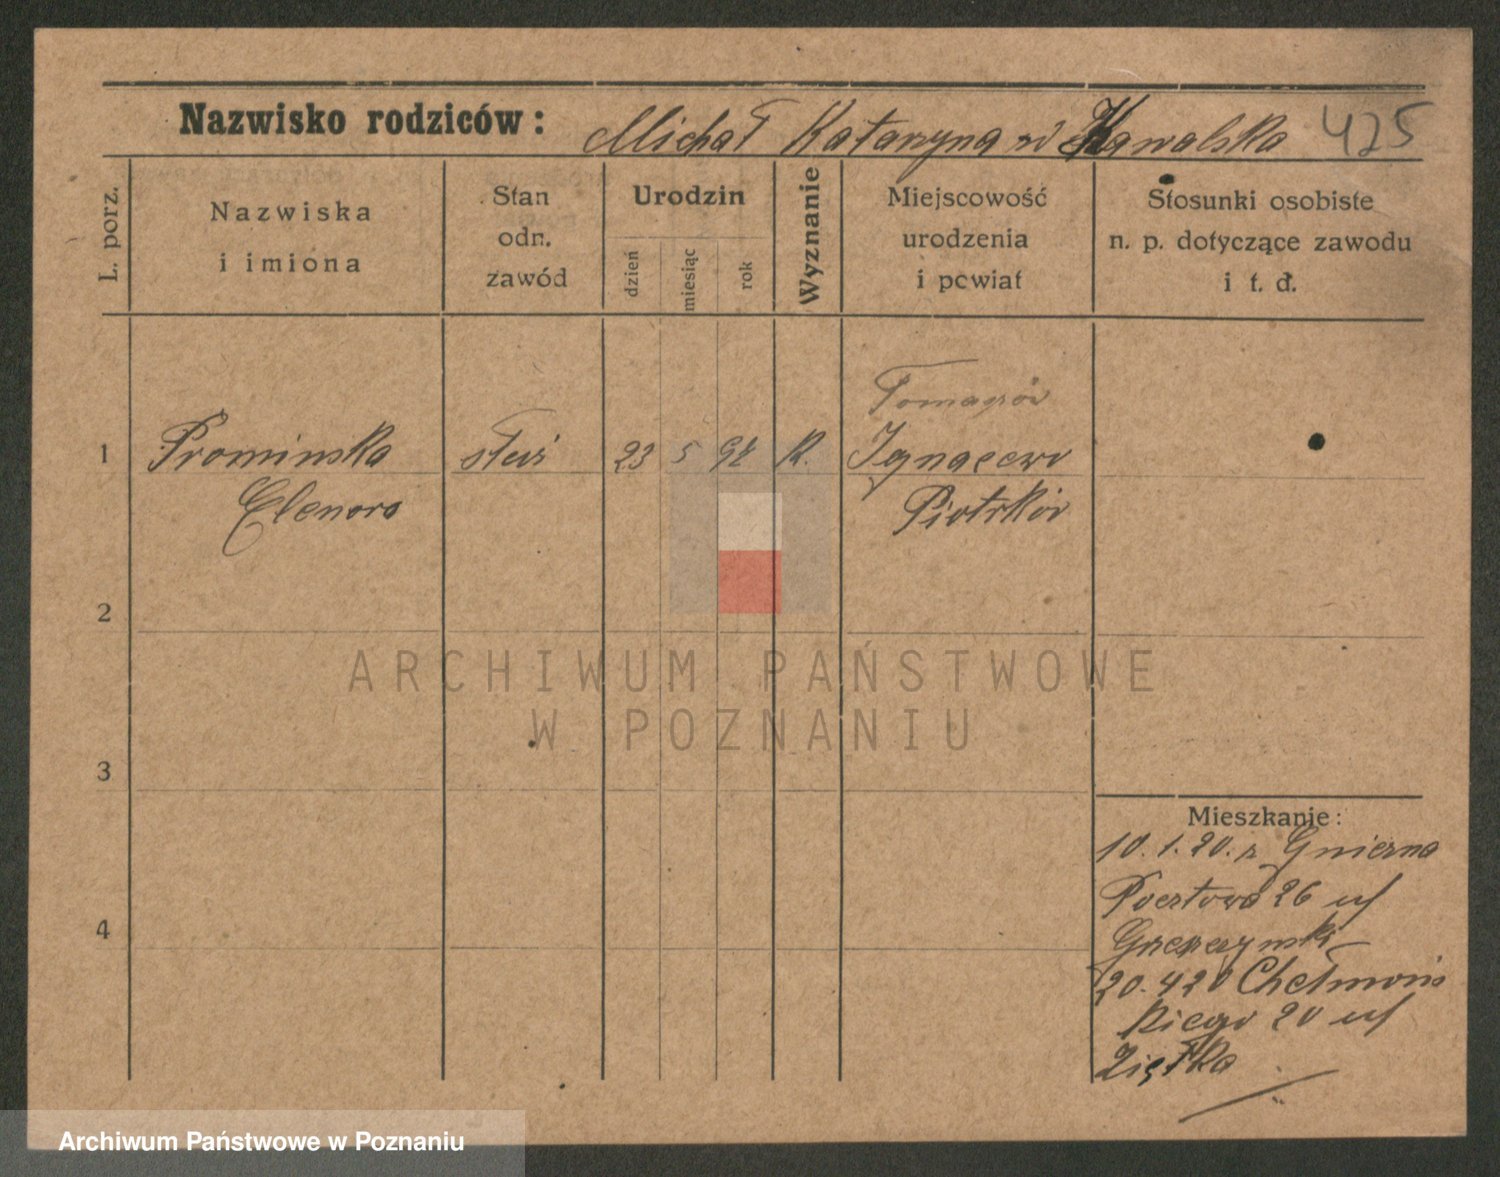 Nazwisko rodziców: Michał Katarzyna zd Kowalska 425
L. porz.
Nazwiska
i imiona
Stan
odn.
zawód
Urodzin
dzień
miesiąc
rok
Wyznanie
Miejscowość
urodzenia
i powiat
Stosunki osobiste
n. p. dotyczące zawodu
i t. d.
Tomagów
1 Prominska służ 23 5 92 K. Ignacewo
Elenora Piotrków
2
3
4
Mieszkanie:
10.1.20. z Gniezna
Pocztowa 26 uf
20.420 Chełmońs
kiego 20 uf
Ziętka
ARCHIWUM PAŃSTWOWE
W POZNANIU
Archiwum Państwowe w Poznaniu